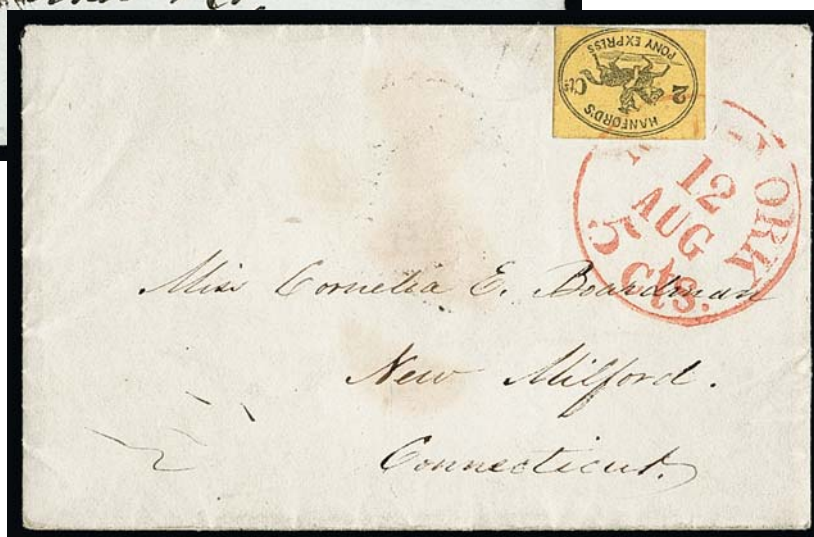 HANFORD'S
2 Cts
PONY EXPRESS
YORK
12
AUG
5 Cts.
Miss Cornelia E. Boardman
New Milford.
Connecticut.